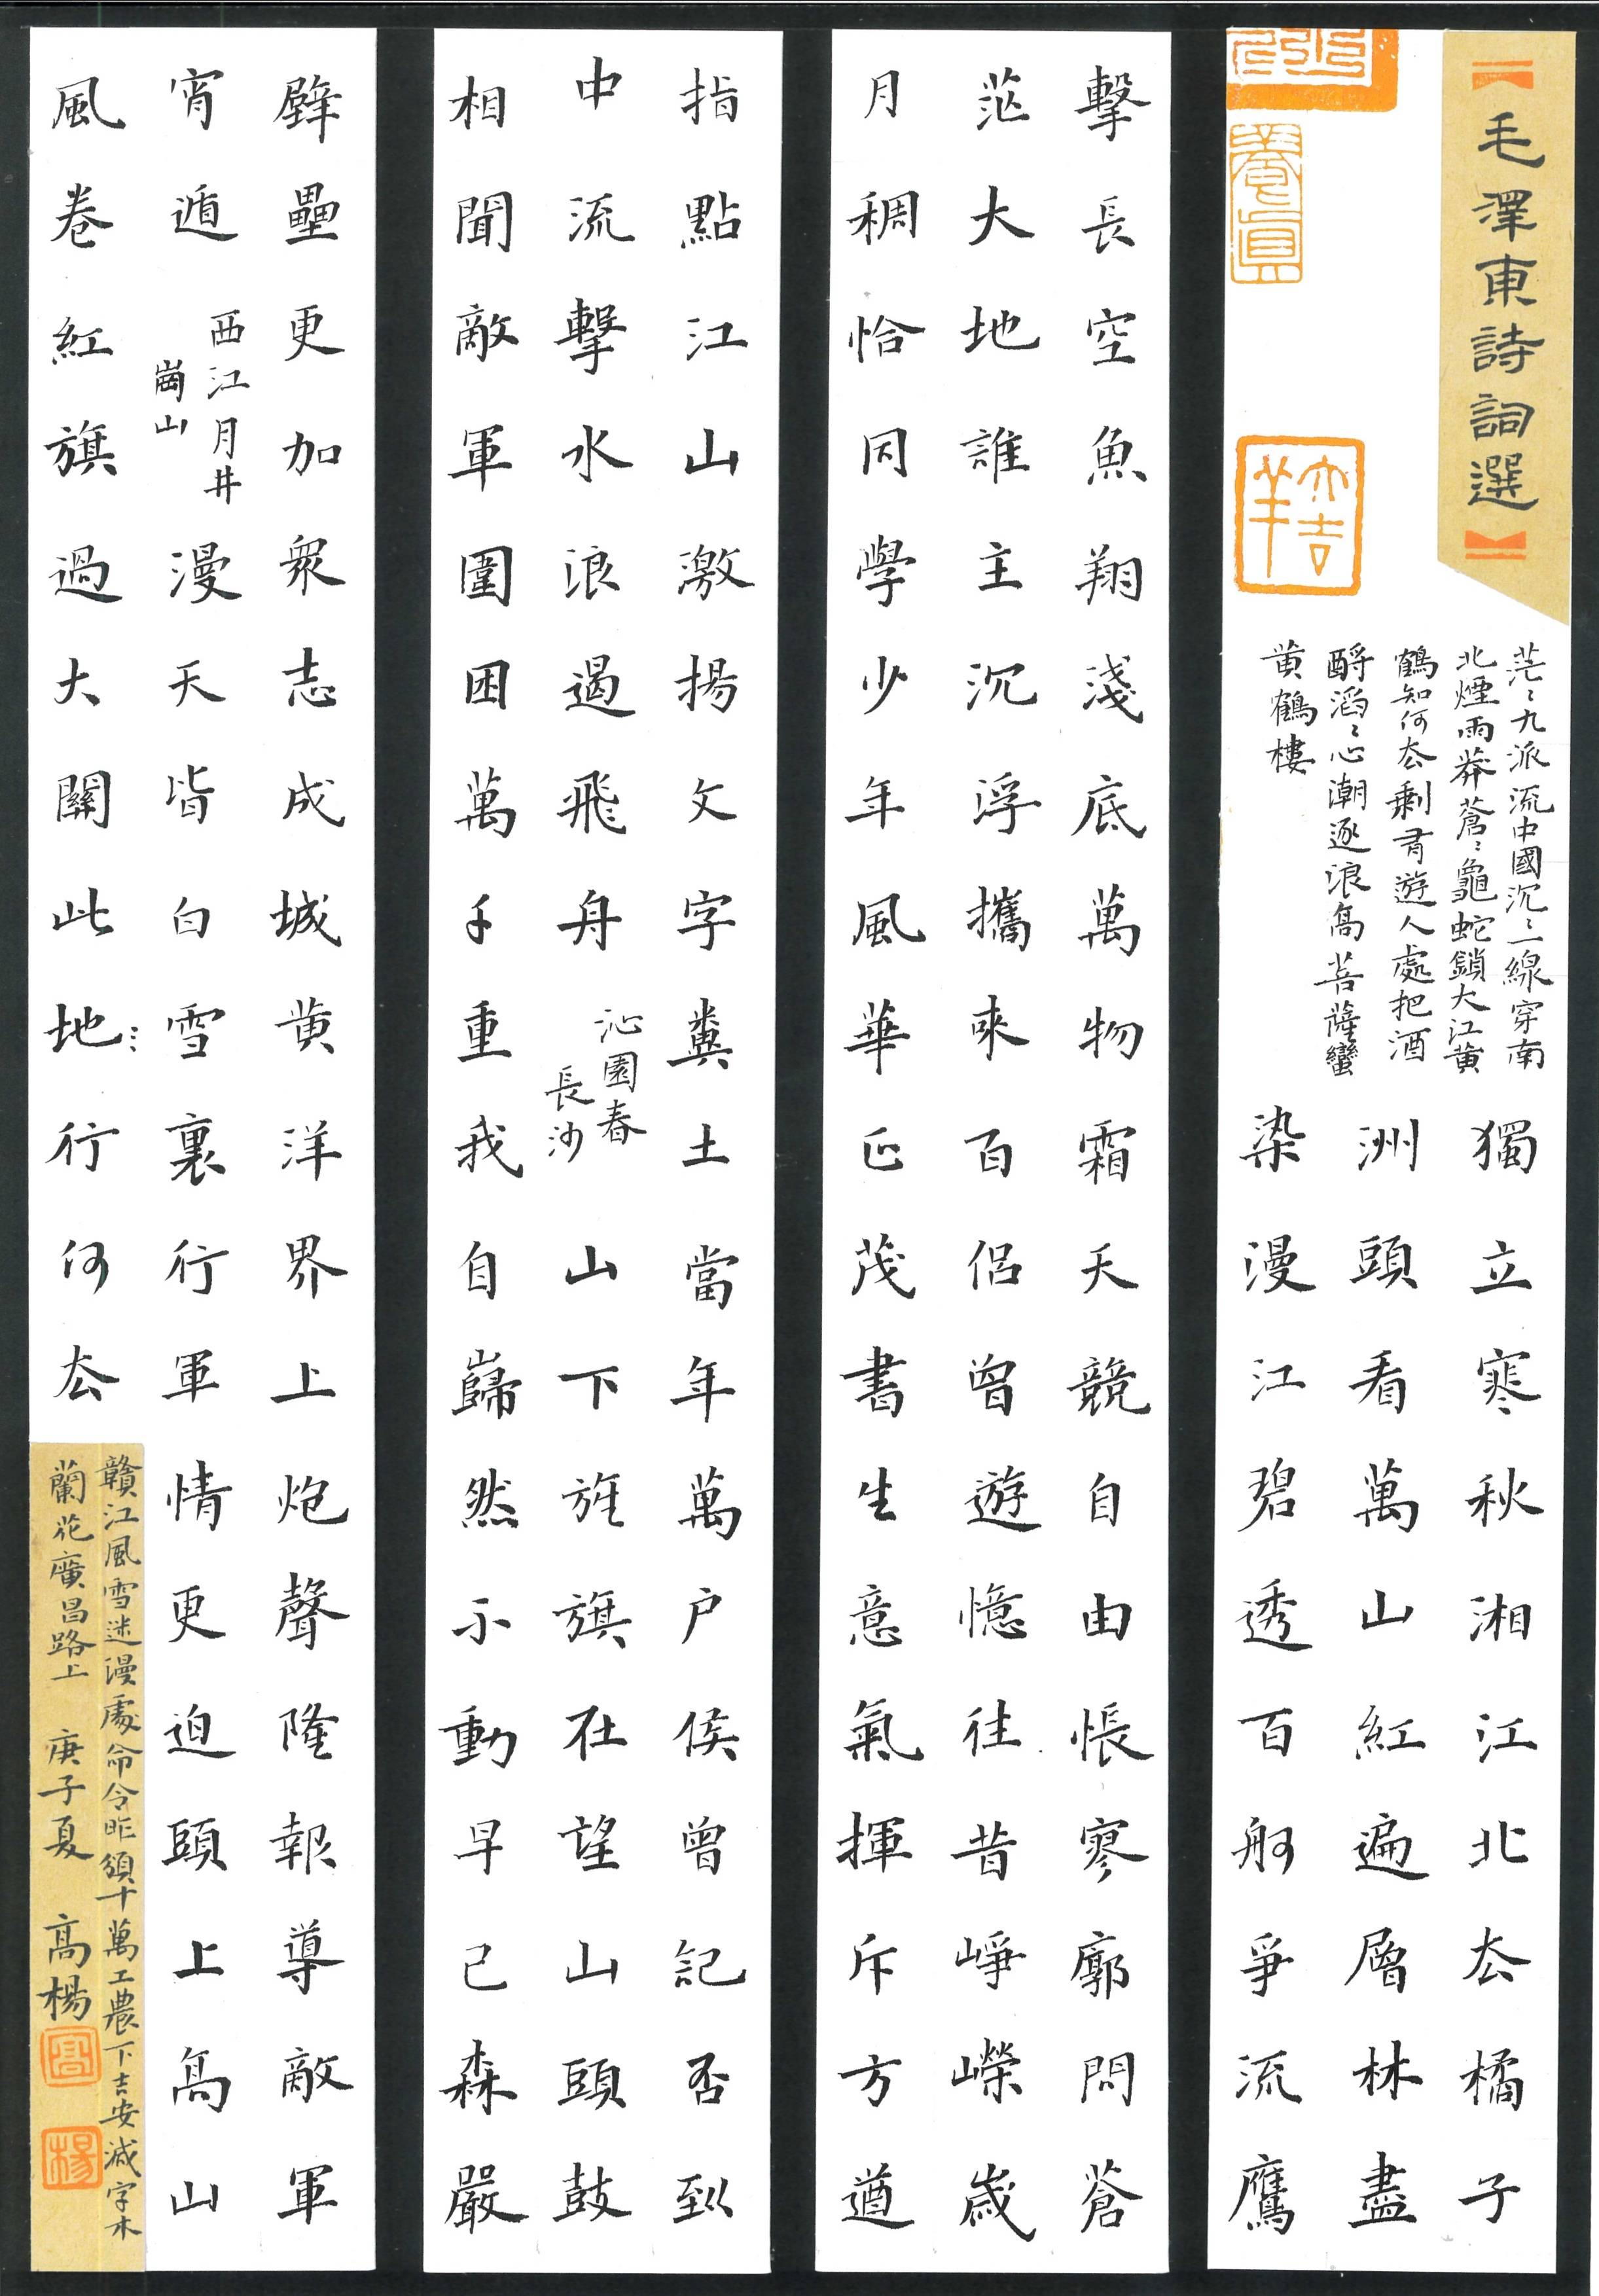 【毛澤東詩詞選】
大吉羊
茫〻九派流中國沉〻一線穿南
北煙雨莽蒼〻龜蛇鎖大江黄
鶴知何去剩有遊人處把酒
酹滔〻心潮逐浪高 菩薩蠻
黄鶴樓
獨立寒秋湘江北去橘子
洲頭看萬山紅遍層林盡
染漫江碧透百舸爭流鷹
擊長空魚翔淺底萬物霜天競自由悵寥廓問蒼
茫大地誰主沉浮攜來百侶曾遊憶往昔崢嶸歲
月稠恰同學少年風華正茂書生意氣揮斥方遒
指點江山激揚文字糞土當年萬户侯曾記否到
中流擊水浪遏飛舟 沁園春長沙 山下旌旗在望山頭鼓
相聞敵軍圍困萬千重我自巋然不動早已森嚴
壁壘更加衆志成城黄洋界上炮聲隆報導敵軍
宵遁 西江月井崗山 漫天皆白雪裏行軍情更迫頭上高山
風卷紅旗過大關此地行何去
贛江風雪迷漫處命令昨頒十萬工農下吉安減字木
蘭花廣昌路上 庚子夏 高楊
高
楊